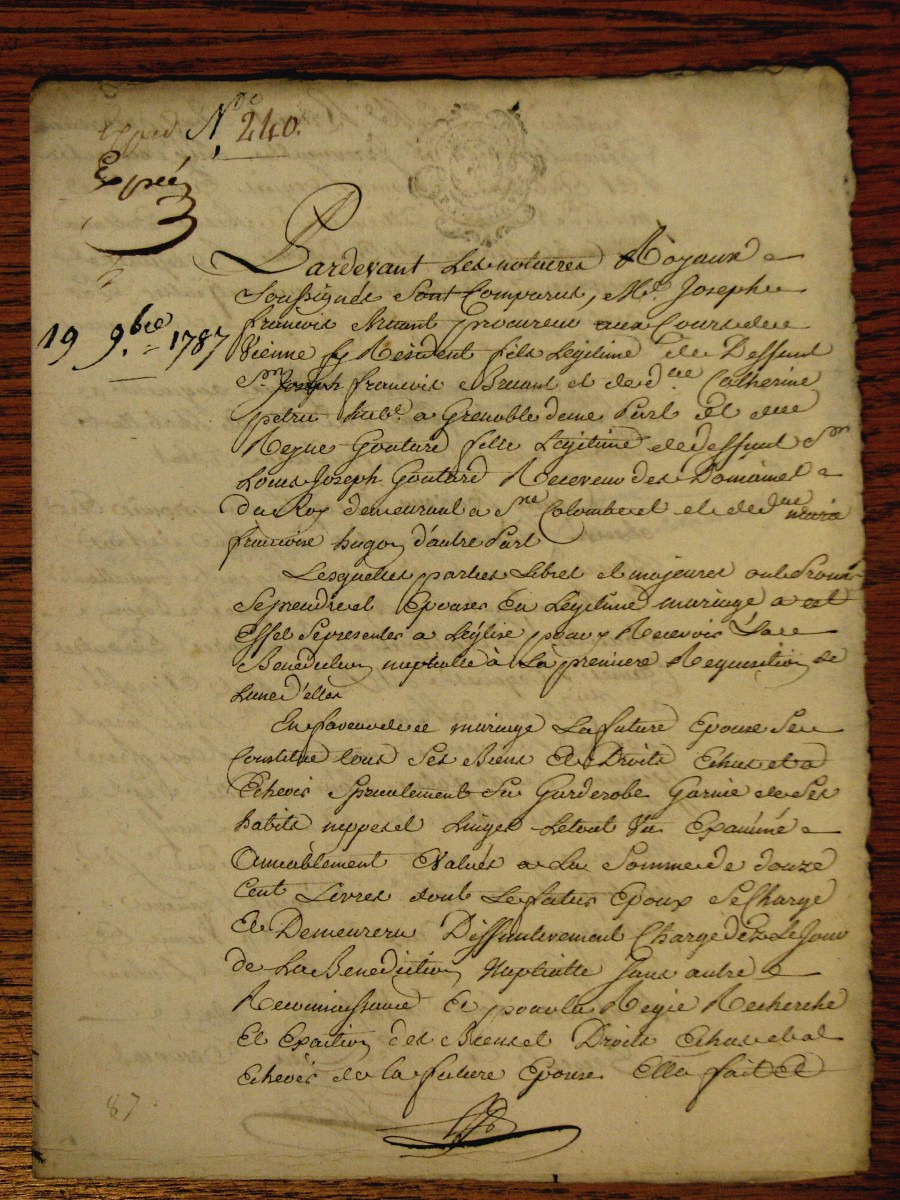 N.de 240.
Expéé
19 9.bre 1787
Pardevant Les notaires Royaux
Soussignés Sont Comparus, M.e Joseph
francois Bruant procureur aux Cours de
Vienne y Résident fils Légitime de Deffunt
S.r Joseph francois Bruant et de d.lle Catherine
petru hab.t a Grenoble dune Part Et d.lle
Reyne Goutard fille Légitime de deffunt S.r
Louis Joseph Goutard Receveur des Domaines
du Roy demeurant a S.te Colombe et de d.me maria
francoise hugon d'autre Part
Lesquelles parties Libres et majeures ont Promis
Se prendre et Epouser En Légitime mariage a cet
Effet Se presenter a L'église pour y Recevoir La
Benediction nuptialle à La premiere Requisition de
Lune d'elles
En faveur de ce mariage La future Epouse Se
Constitue tous Ses Biens Et Droits Echus et a
Echeoir Specialement Sa Garderobe Garnie de Ses
habits nippes et Linges Le tout Vu Examiné
Amiablement Evalués a La Somme de douze
Cent Livres dont Le futur Epoux Se Charge
Et Demeurera Diffinitivement Chargé dez Le Jour
de La Benediction Nuptialle Sans autre
Reconnaissance Et pour La Regie Recherche
Et Exaction des Biens et Droits Echus et a
Echeoir de la future Epouse Elle fait Et
87